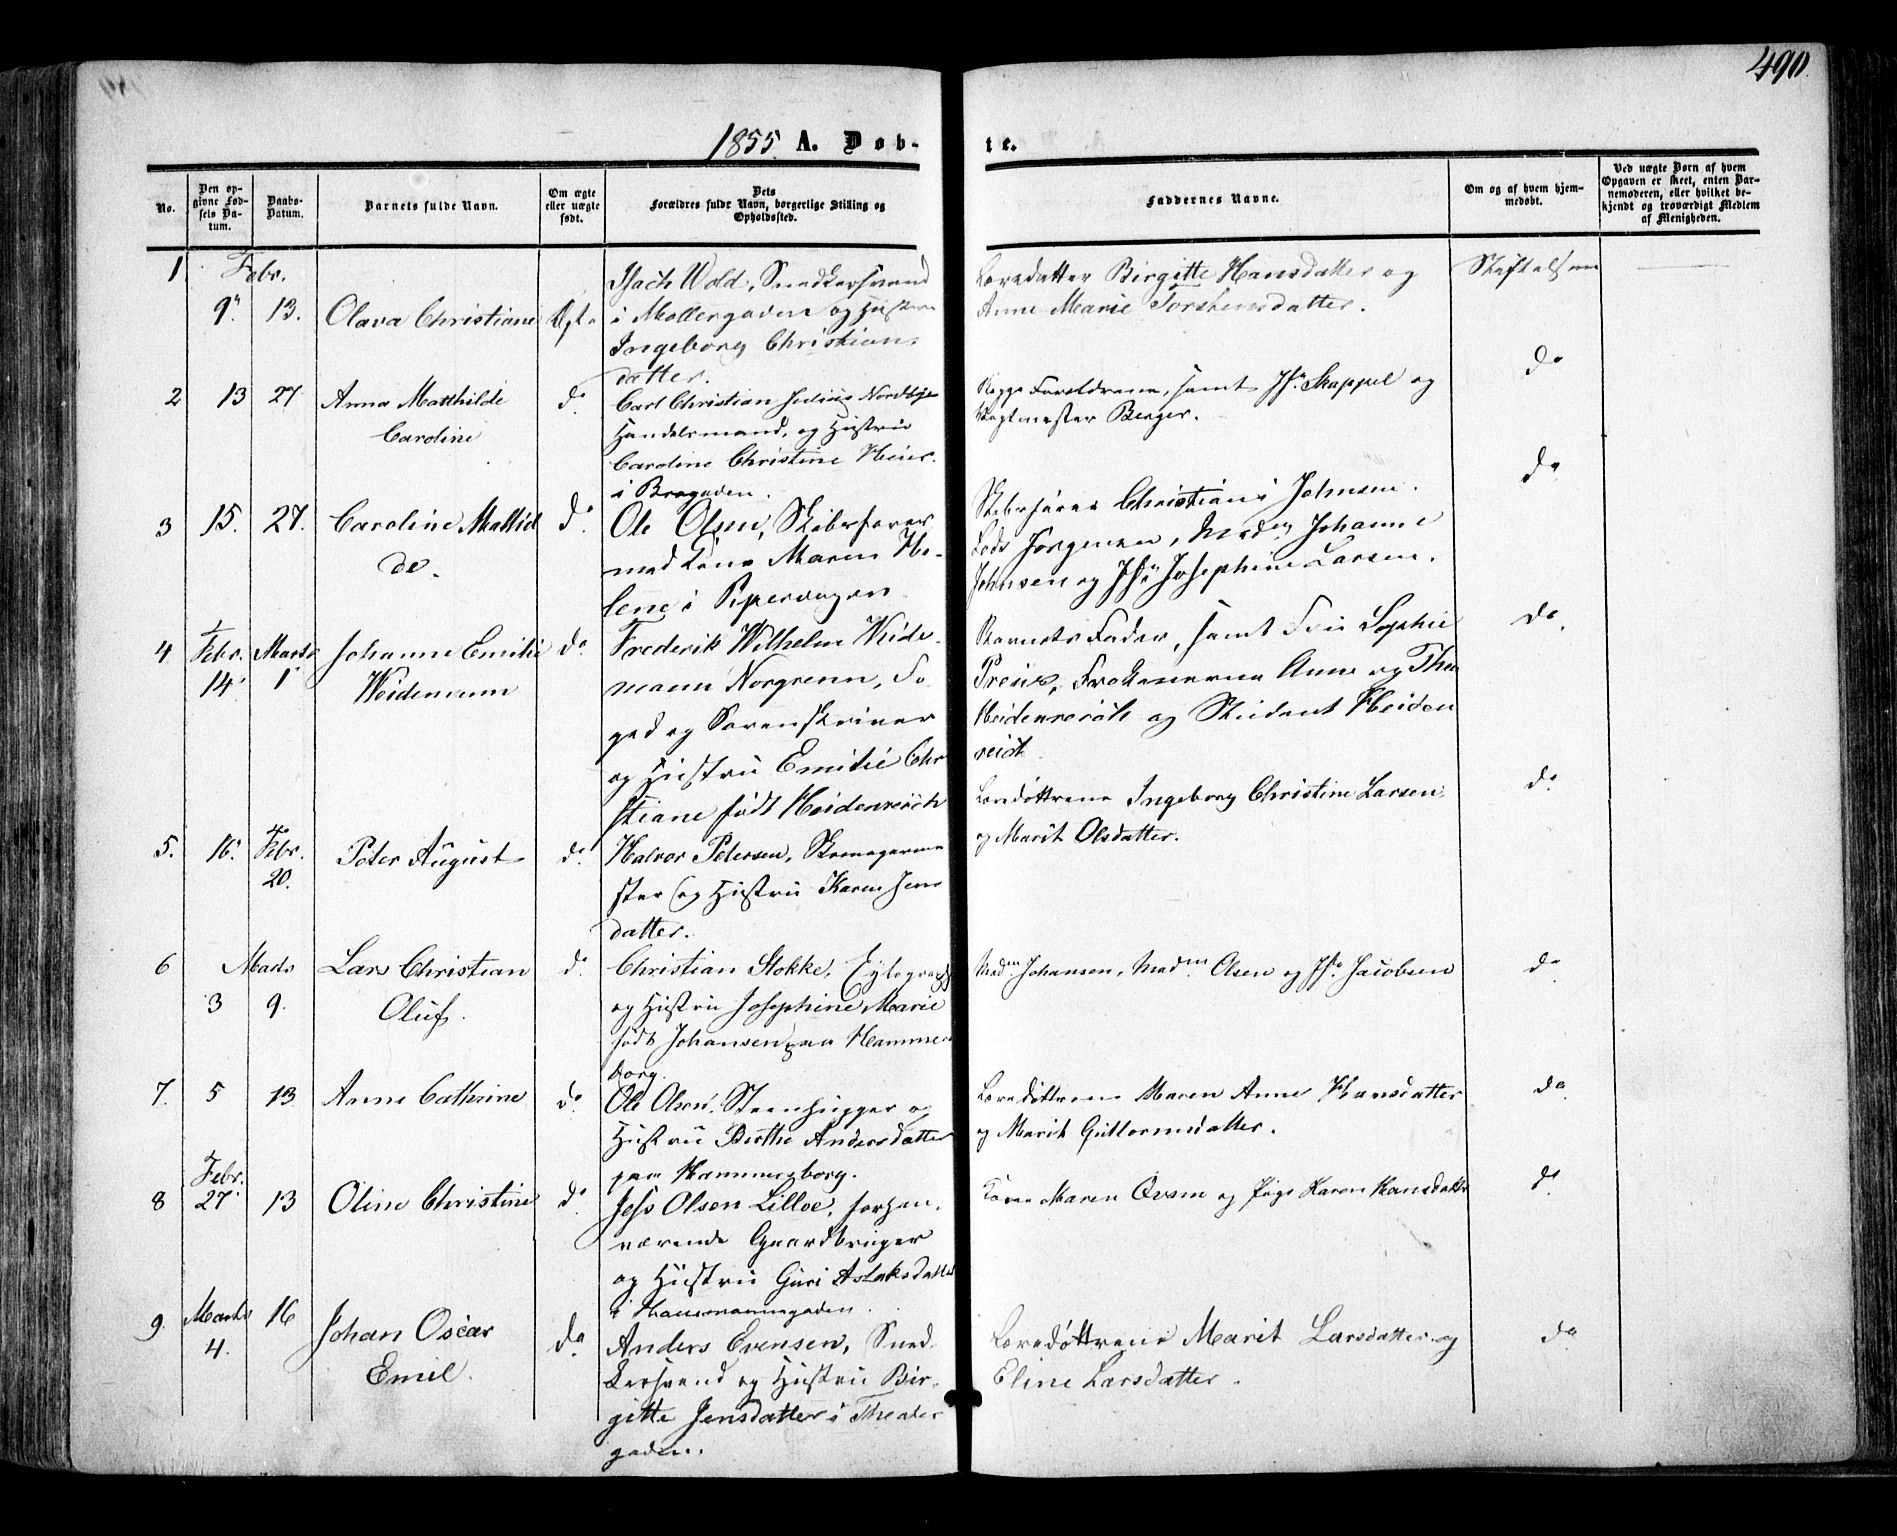 490.
1855. A. Døb-
te.
No.
Den op-
givne Fød-
sels Da-
tum.
Daabs-
Datum.
Barnets fulde Navn.
Om ægte
eller uægte
født.
Dets
Forældres fulde Navn, borgerlige Stilling og
Opholdssted.
Faddernes Navne.
Om og af hvem hjem-
medøbt.
Ved uægte Børn af hvem
Opgaven er skeet, enten Bar-
nemoderen, eller hvilket be-
kjendt og troværdigt Medlem
af Menigheden.
1 Febr.
9. 13. Olava Christiane Ægte
Isach Wold, Snedkersvend
i Møllergaden og Hustru
Ingeborg Christians
datter.
Læredatter Birgitte Hansdatter og
Anne Marie Torstensdatter.
Stiftelsen
2 13 27 Anna Matthilde
Caroline
do
Carl Christian Julius Nordbye
Handelsmand, og Hustru
Caroline Christine Heier.
i Brogaden.
Begge Forældrene, samt Jfr. Skappel og
Vagtmester Berger.
do
3 15. 27. Caroline Mathil
de.
do
Ole Olsen, Skibsfører
med Kone Maren He-
lene i Pipervigen
Skibsfører Christian Johnsen.
Lods Jørgensen, Madm Johanne
Johnsen og Jfr Josephine Larsen.
do
4 Febr. Marts
14. 1
Johanne Emilie
Weidemann
do
Frederik Wilhelm Weide-
mann Norgrenn, Fo-
ged og Sorenskriver
og Hustru Emilie Chri
stiane født Heidenreich
Barnets Fader, samt Frue Sophie
Preus, Frøknerne Anne og Thea
Heidenreich og Student Heiden
reich
do
5. 16. Febr.
20.
Peter August
do
Halvor Petersen, Skomagerme
ster og Hustru Karen Jens
datter.
Læredøttrene Ingeborg Christine Larsen
og Marit Olsdatter.
do
6 Marts
3 9.
Lars Christian
Oluf.
do
Christian Stokke,
og Hustru Josephine Marie
født Johansen paa Hammers
borg.
Madm Johansen, Madm Olsen og Jfr. Jacobsen
do
7. 5 13 Anne Cathrine do
Ole Olsen, Steenhugger og
Hustru Birthe Andersdatter
paa Hammersborg.
Læredøttrene Maren Anne Hansdatter
og Marit Guttormsdatter.
do
8 Febr.
27 13 Oline Christine do
Jess Olsen Lilloe, forhen-
værende Gaardbruger
og Hustru Guri Aslaksdatter
i Hausmannsgaden.
Kone Maren Evsen og Pige Karen Hansdatter
do
9. Marts 16
4.
Johan Oscar
Emil.
do
Anders Evensen, Sned-
kersvend og Hustru Bir-
gitte Jensdatter i Theater
gaden.
Læredøttrene Marit Larsdatter og
Eline Larsdatter.
do